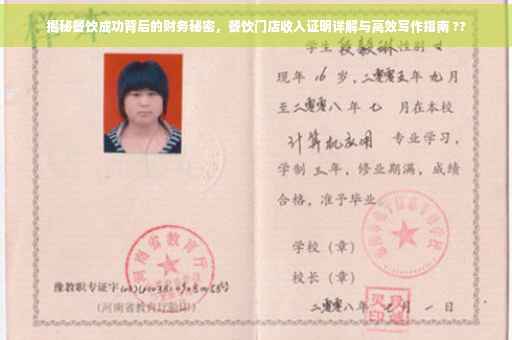 揭秘餐饮成功背后的财务秘密，餐饮门店收入证明详解与高效写作指南 ??
学生 性别 女
现年 16 岁，二零零五年 九月
至二零零八年 七 月在本校
计算机应用 专业学习，
学制 三年，修业期满，成绩
合格，准予毕业
学校（章）
校长（章）
河南省教育厅
豫教职专证字
（河南省教育厅验印）
二零零八年 七月 一日